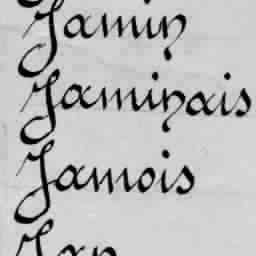 Jamin
Jaminais
Jamois
Jan